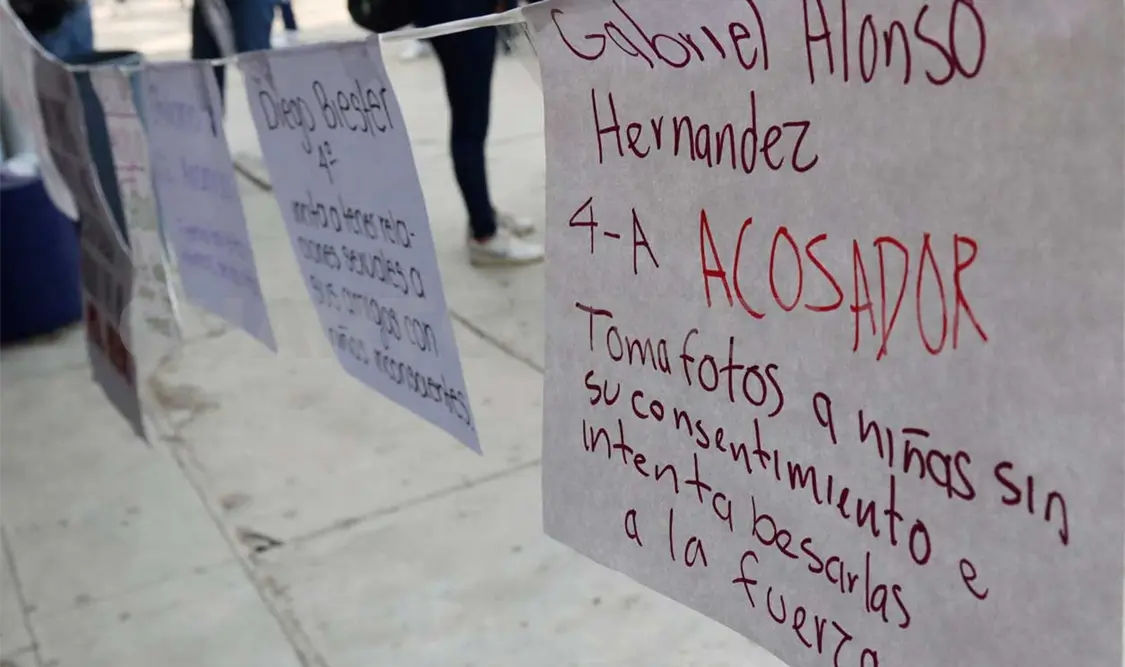 Diego Biester
4º
invita a tener rela-
ciones sexuales a
sus amigos con
niñas inconscientes
Gabriel Alonso
Hernandez
4-A ACOSADOR
Toma fotos a niñas sin
su consentimiento e
intenta besarlas
a la fuerza